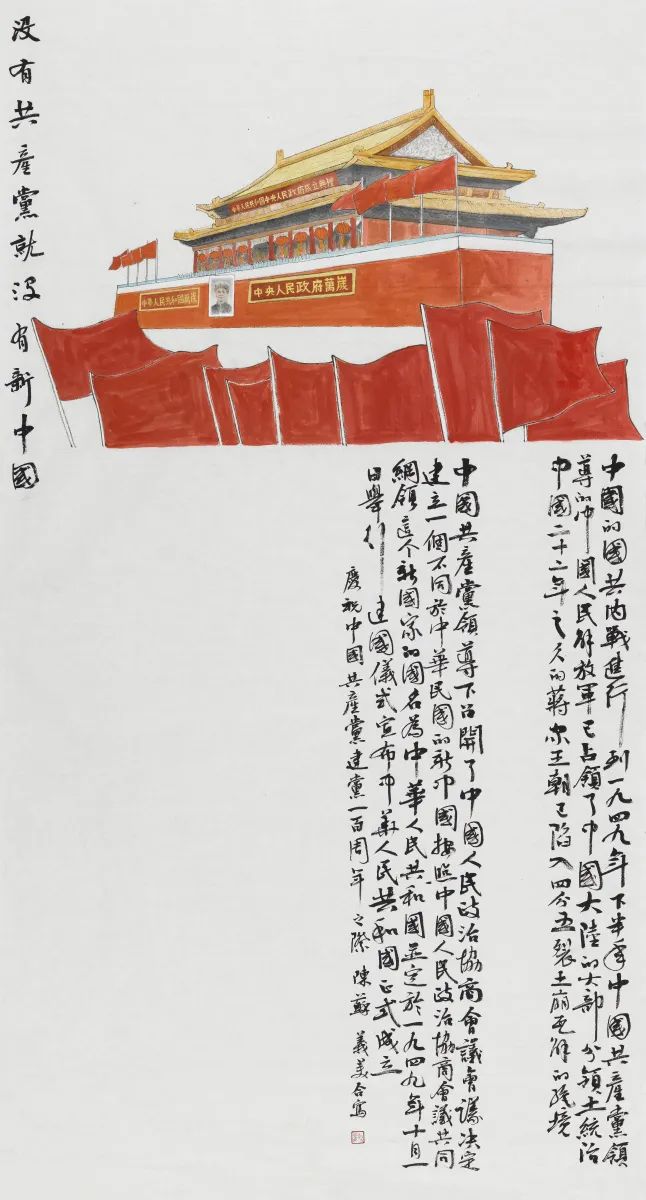 没有共產黨就没有新中國
中華人民共和國中央人民政府成立典禮
中華人民共和國萬歲
中央人民政府萬歲
中國的國共内戰進行到一九四九年下半年中國共產黨領
導的中國人民解放軍已占領了中國大陸的大部分領土統治
中國二十二年之久的蔣家王朝已陷入四分五裂土崩瓦解的絶境
中國共產黨領導下召開了中國人民政治協商會議會議决定
建立一個不同於中華民國的新中國按照中國人民政治協商會議共同
綱領這个新國家的國名為中華人民共和國並定於一九四九年十月一
日舉行建國儀式宣布中華人民共和國正式成立
慶祝中國共產黨建黨一百周年之際 陳蘇 義美合寫